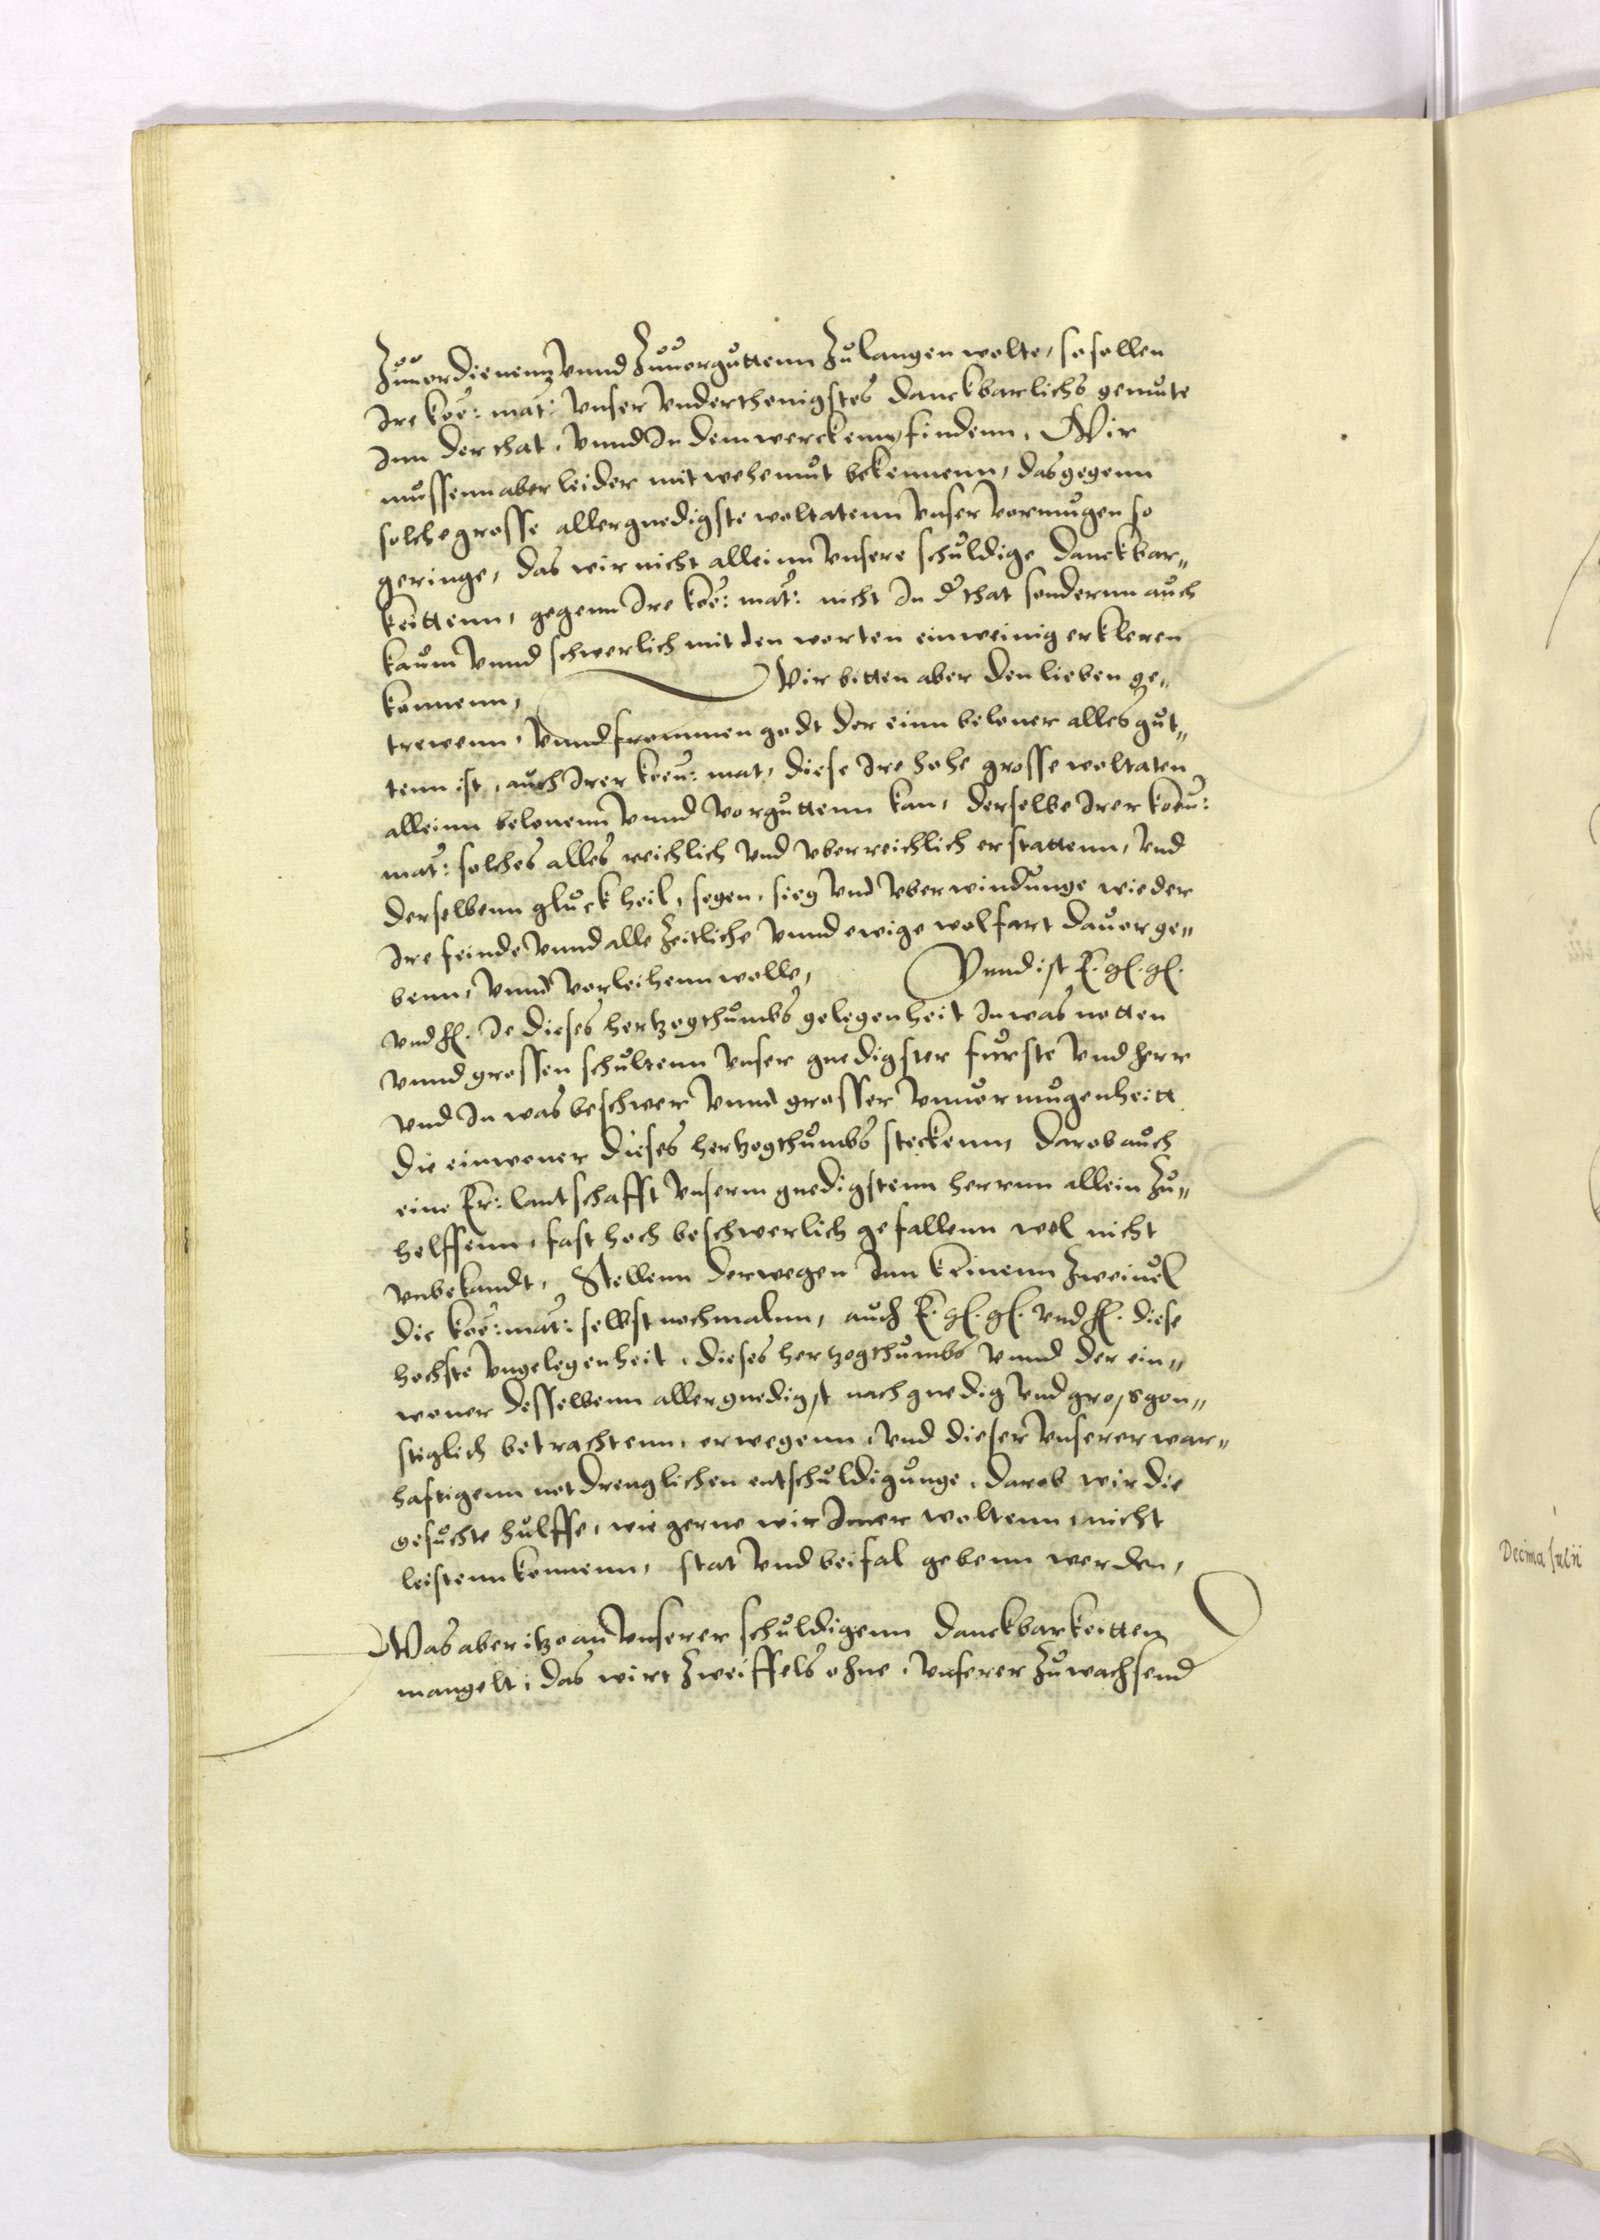 Zuuordienenn, vnnd Zuuorguttenn Zu langen wolte, so sollen
Ire koe: mat: vnser vnderthenigstes danckbarlichs gemute
Inn der that, vnnd In dem werck empfindenn, Wir
mussenn aber leider mit wehemut bekennenn, das gegenn
solche grosse allergnedigste woltatenn vnser vormugen so
geringe, das wir nicht alleinn vnsere schuldige danckbar„
keittenn, gegenn Ire koe: mat: nicht In d' that sondernn auch
kaum vnnd schwerlich mit den worten ein weinig erkleren
konnenn, Wir bitten aber den lieben ge„
trewenn, vnnd frommen godt der einn beloner alles gut„
tenn ist, auch Irer koen: mat, diese Ire hohe grosse woltaten
alleinn belonenn vnnd vorguttenn kan, derselbe Irer koen:
mat: solches alles reichlich vnd vberreichlich erstattenn, vnd
derselbenn gluck heil, segen, sieg vnd vberwindunge wieder
Ire feinde vnnd alle Zeitliche vnnd ewige wolfart dauor ge„
benn, vnnd vorleihenn wolle, Vnnd ist E. gl. gl.
vnd hl. Je dieses hertzogthumbs gelegenheit In was notten
vnnd grossen schultenn vnser gnedigster furste vnd herr
vnd In was beschwer vnnd grosser vnuormugenheitt
die einwoner dieses hertzogthumbs steckenn, darob auch
eine Er: lantschafft vnserm gnedigstenn herrnn allein Zu„
helffenn, fast hoch beschwerlich gefallenn wol nicht
vnbekandt, Stellenn derwegen Inn keinenn Zweiuel
die koe: mat: selbst nochmalnn, auch E. gl. gl. vnd hl. diese
hochste vngelegenheit, dieses hertzogthumbs vnnd der ein„
woner desselbenn allergnedigst nach gnedig vnd grosgon„
stiglich betrachtenn, erwegenn, vnd dieser vnserer war„
hafftigenn notdrenglichen entschuldigunge, darob wir die
gesuchte hulffe, wie gerne wir Imer woltenn, nicht
leistenn konnenn, stat vnd beifal gebenn werden,
Was aber itzo an vnserer schuldigenn danckbarkeitten
mangelt, das wirt Zweiffels ohne, vnserer Zuwachsend
Decima Julii